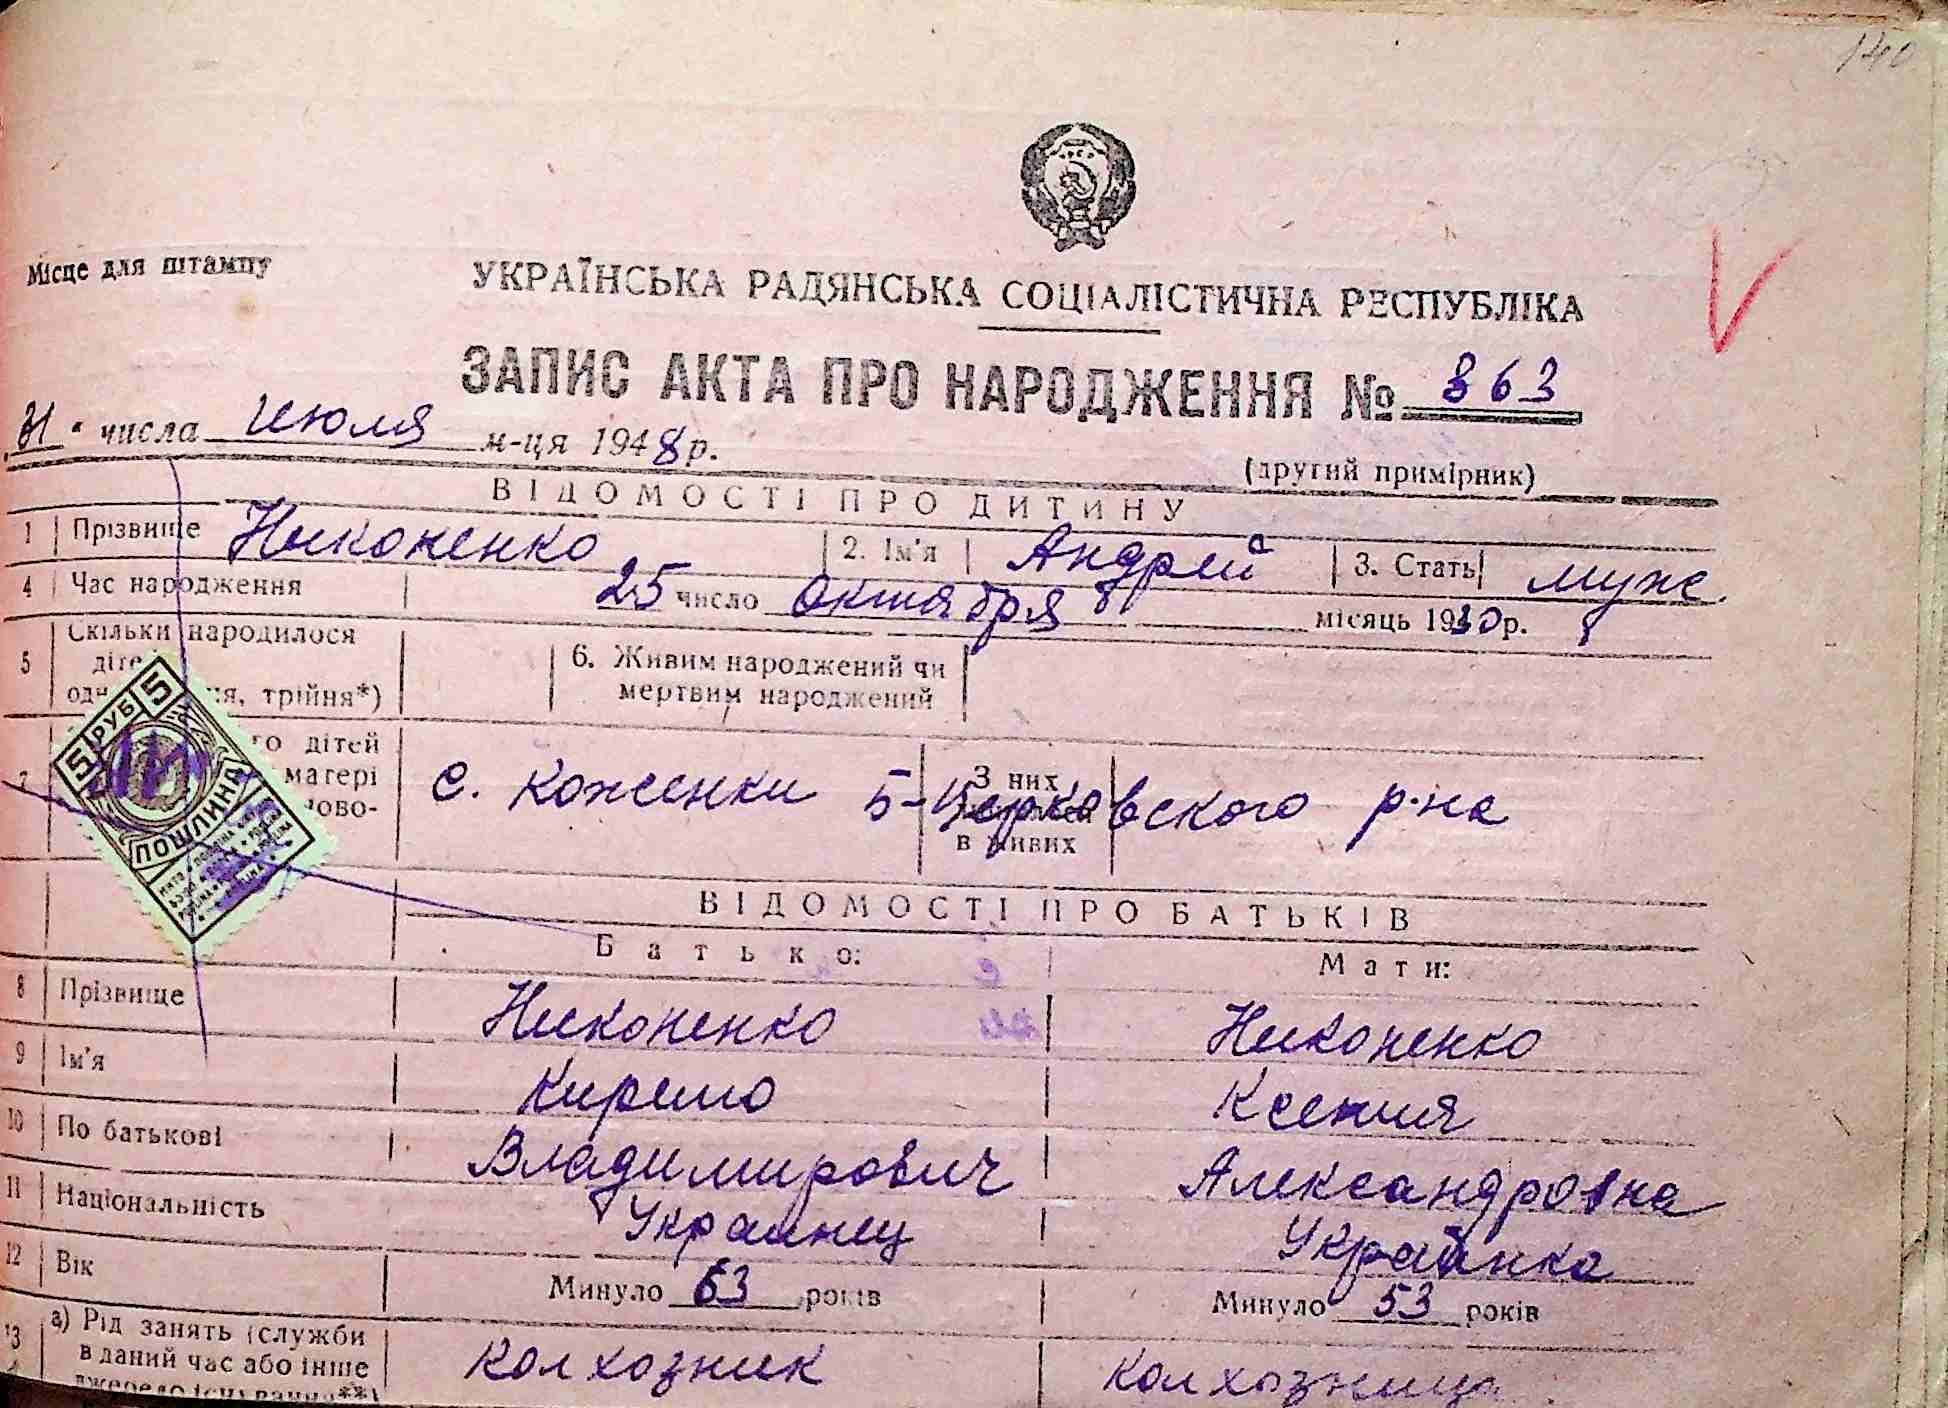 140
Місце для штампу
УКРАЇНСЬКА РАДЯНСЬКА СОЦІАЛІСТИЧНА РЕСПУБЛІКА
ЗАПИС АКТА ПРО НАРОДЖЕННЯ № 863
31 числа Июля м-ця 1948 р.
(другий примірник)
ВІДОМОСТІ ПРО ДИТИНУ
1 Прізвище Никоненко 2. Ім'я Андрей 3. Стать муж.
4 Час народження 25 число октября місяць 1930 р.
5 Скільки народилося
6. Живим народжений чи
мертвим народжений
трійня*)
дітей
матері
З них
в живих
7 с. Коженки Б-Церковского р-на
5 РУБ 5
ПОШЛИНА
ВІДОМОСТІ ПРО БАТЬКІВ
Батько: Мати:
8 Прізвище Никоненко Никоненко
9 Ім'я Кирило Ксения
10 По батькові Владимирович Александровна
11 Національність Украинец Украинка
12 Вік Минуло 63 років Минуло 53 років
13 а) Рід занять (служби
в даний час або інше
джерело існування**)
Колхозник колхозница